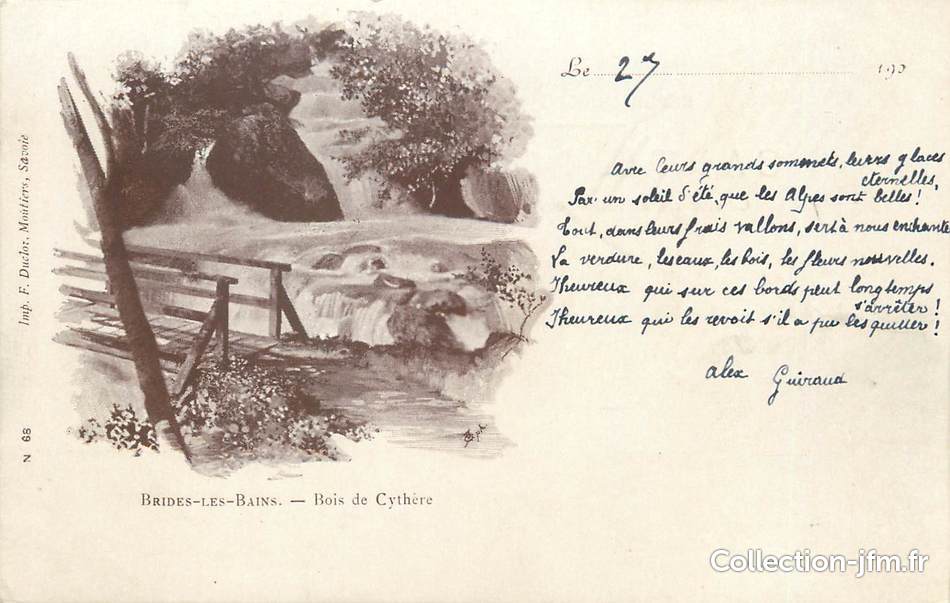 Le 27 190
Avec leurs grands sommets, leurs glaces
éternelles,
Par un soleil d'été, que les Alpes sont belles!
Tout, dans leurs frais vallons, sert à nous enchanter
La verdure, les eaux, les bois, les fleurs nouvelles.
Heureux qui sur ces bords peut longtemps
s'arrêter!
Heureux qui les revoit s'il a pu les quitter!
Alex Guiraud
Imp. F. Ducloz, Moûtiers, Savoie
N 68
BRIDES-LES-BAINS. — Bois de Cythère
Collection-jfm.fr